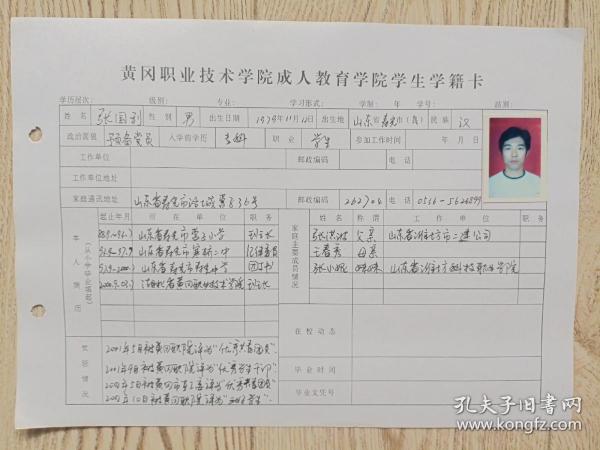 黄冈职业技术学院成人教育学院学生学籍卡
学历层次: 级别: 专业: 学习形式: 学制: 年 学号: 届别:
姓名 张国利 性别 男 出生日期 1979年11月12日 出生地 山东省寿光市(县) 民族 汉
政治面貌 预备党员 入学前学历 专科 职业 学生 参加工作时间 年 月 日
工作单位 邮政编码 电话
工作单位地址
家庭通讯地址 山东省寿光市 336号 邮政编码 262704 电话 0536-5626899
本人简历
(从小学毕业填起)
起止年月 所在单位 职务
山东省寿光市 小学 班长
山东省寿光市 二中 纪律委员
山东省寿光市 中学 团支书
湖北省黄冈职业技术学院 班长
家庭主要成员情况
姓名 称谓 工作单位 职务
张洪波 父亲 山东省潍坊市二建公司
王春秀 母亲
张小妮 妹妹 山东省潍坊市科技职业学院
奖惩情况
2001年5月被黄冈职院评为"优秀共青团员"
2001年9月被黄冈职院评为"优秀学生干部"
2002年5月被黄冈市 评为"优秀共青团员"
2002年10月被黄冈职院评为" 学生"
在校动态
毕业时间
毕业文凭号
孔夫子旧书网
www.kongfz.com